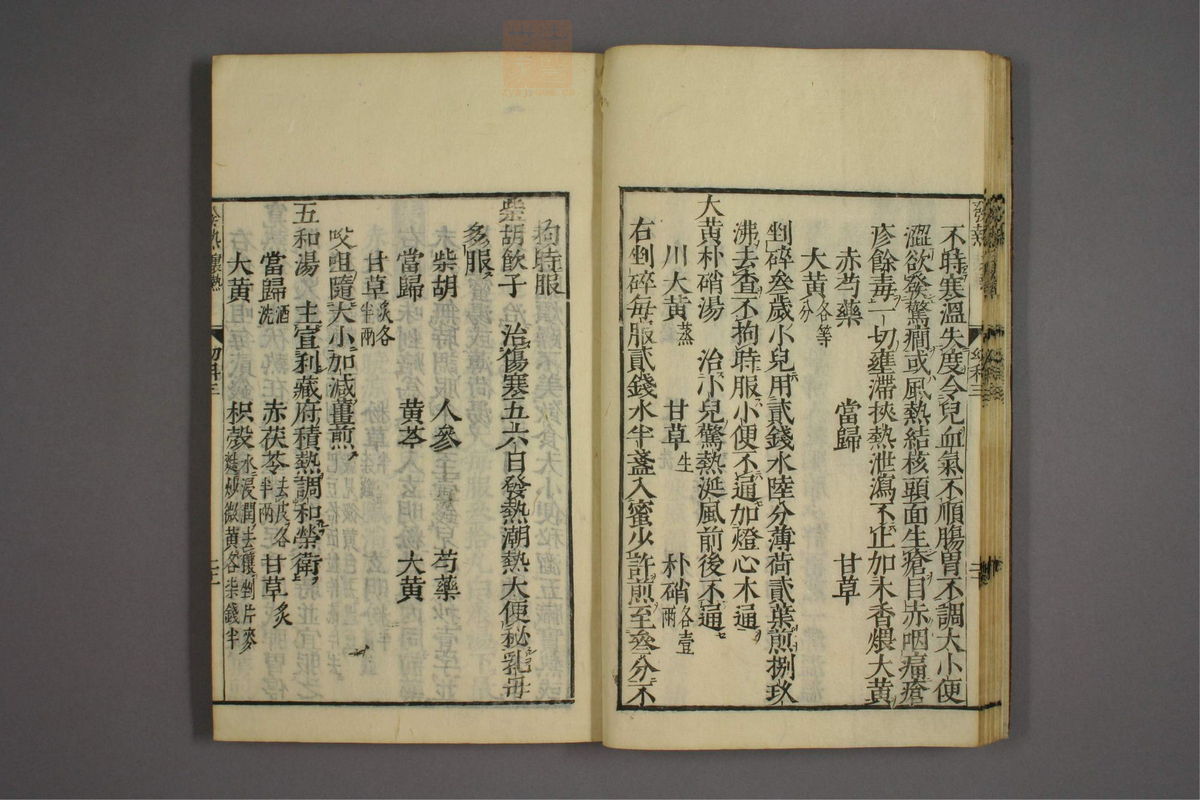 不時寒溫失度令兒血氣不順腸胃不調大小便
澀欲發驚癇或風熱結核頭面生瘡目赤咽痛瘡
疹餘毒一切壅滯挾熱泄瀉不止加木香煨大黃
赤芍藥 當歸 甘草
大黃各等分
剉碎叄歲小兒用貳錢水陸分薄荷貳葉煎捌玖
沸去查不拘時服小便不通加燈心木通
大黃朴硝湯 治小兒驚熱涎風前後不通
川大黃蒸 甘草生 朴硝各壹兩
右剉碎每服貳錢水半盞入蜜少許煎至叄分不
發熱 幼科三
拘時服
柴胡飲子 治傷寒五六日發熱潮熱大便秘乳母
多服
柴胡 人參 芍藥
當歸 黃芩 大黃
甘草炙各半兩
㕮咀隨大小加減薑煎
五和湯 主宣利藏府積熱調和榮衛
當歸酒洗 赤茯苓去皮各半兩 甘草炙
大黃 枳殼水浸潤去穰剉片麥麩炒微黃各柒錢半
發熱 壅熱 幼科三